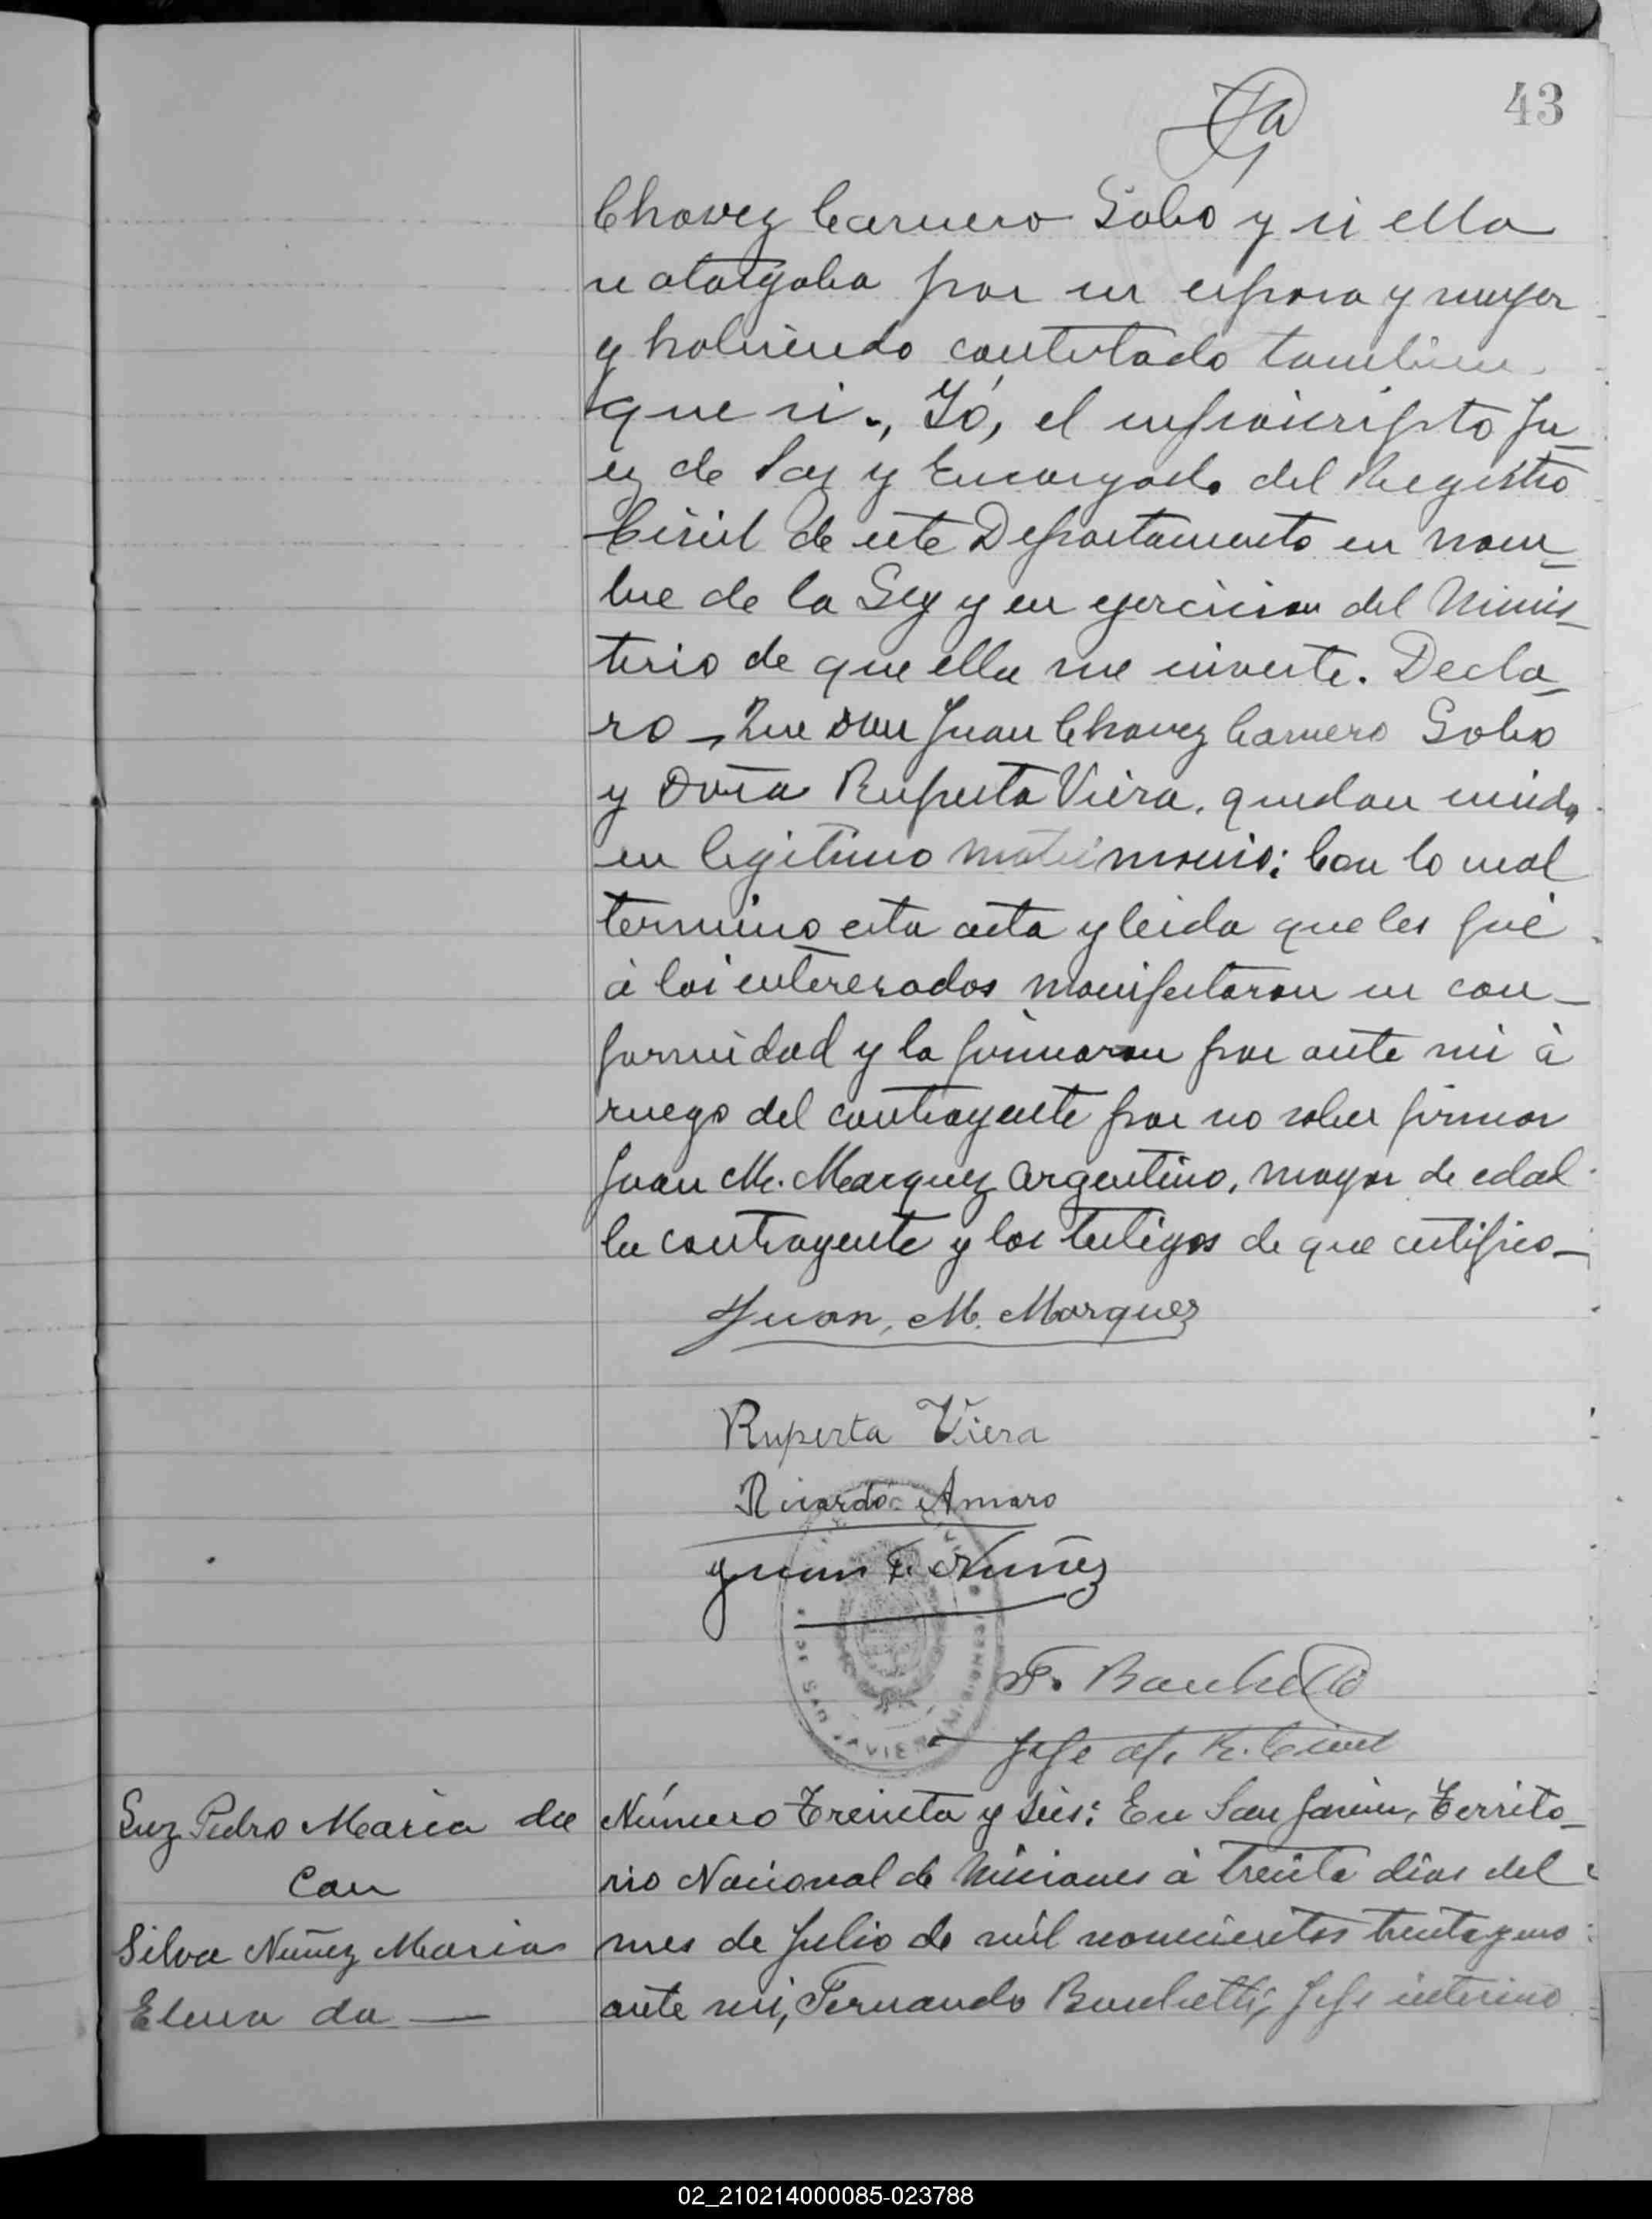 43
Chavez Carnero Gobo y si ella
se otorgaba por su esposa y mujer
y habiendo contestado tambien
que si., Yó, el infrascripto Ju-
ez de Paz y Encargado del Registro
Civil de este Departamento en nom-
bre de la Ley y en ejercicion del Minis-
terio de que ella me inviste. Decla-
ro, Que don Juan Chavez Carnero Gobo
y Doña Ruperta Viera, quedan unidos
en legitimo matrimonio; Con lo cual
termino esta acta y leida que les fué
á los interesados manifestaron su con-
formidad y la firmaron por ante mi á
ruego del contrayente por no saber firmar
Juan M. Marquez argentino, mayor de edad
la contrayente y los testigos de que certifico-
Juan, M. Marquez
Ruperta Viera
Ricardo Amaro
Juan F. Nuñez
F. Banchetti
Jefe R. Civil
DE SAN JAVIER MISIONES
Luz Pedro Maria da
Con
Silva Nuñez Maria
Elena da —
Número Treinta y seis: En San Javier, Territo-
rio Nacional de Misiones á treinta dias del
mes de Julio de mil novecientos treinta y uno
ante mi, Fernando Banchetti, Jefe interino
02_210214000085-023788